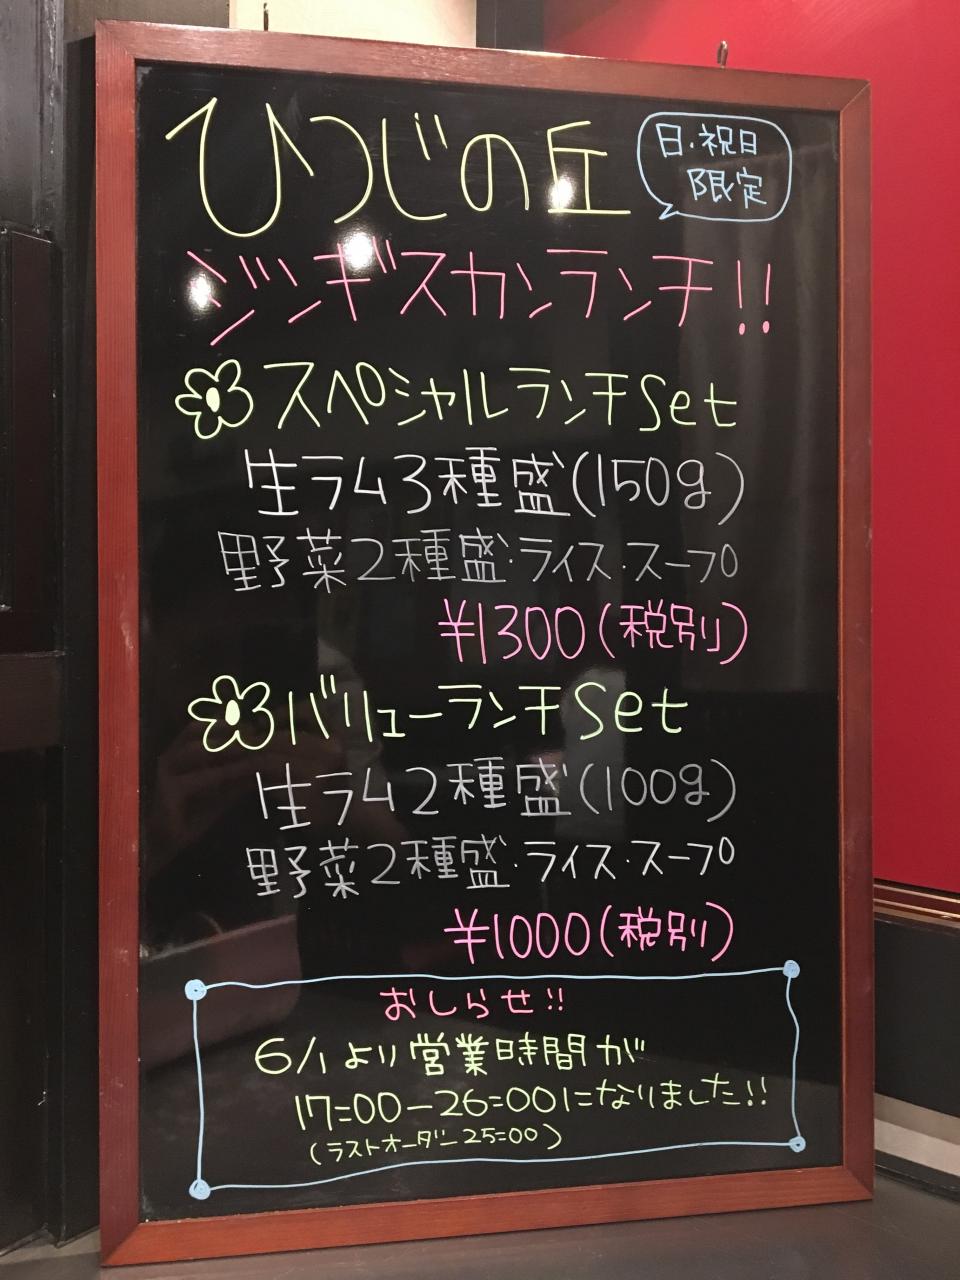 ひつじの丘
日・祝日
限定
ジンギスカンランチ!!
スペシャルランチSet
生ラム3種盛(150g)
野菜2種盛・ライス・スープ
¥1300(税別)
バリューランチSet
生ラム2種盛(100g)
野菜2種盛・ライス・スープ
¥1000(税別)
おしらせ!!
6/1より営業時間が
17:00-26:00になりました!!
(ラストオーダー25:00)